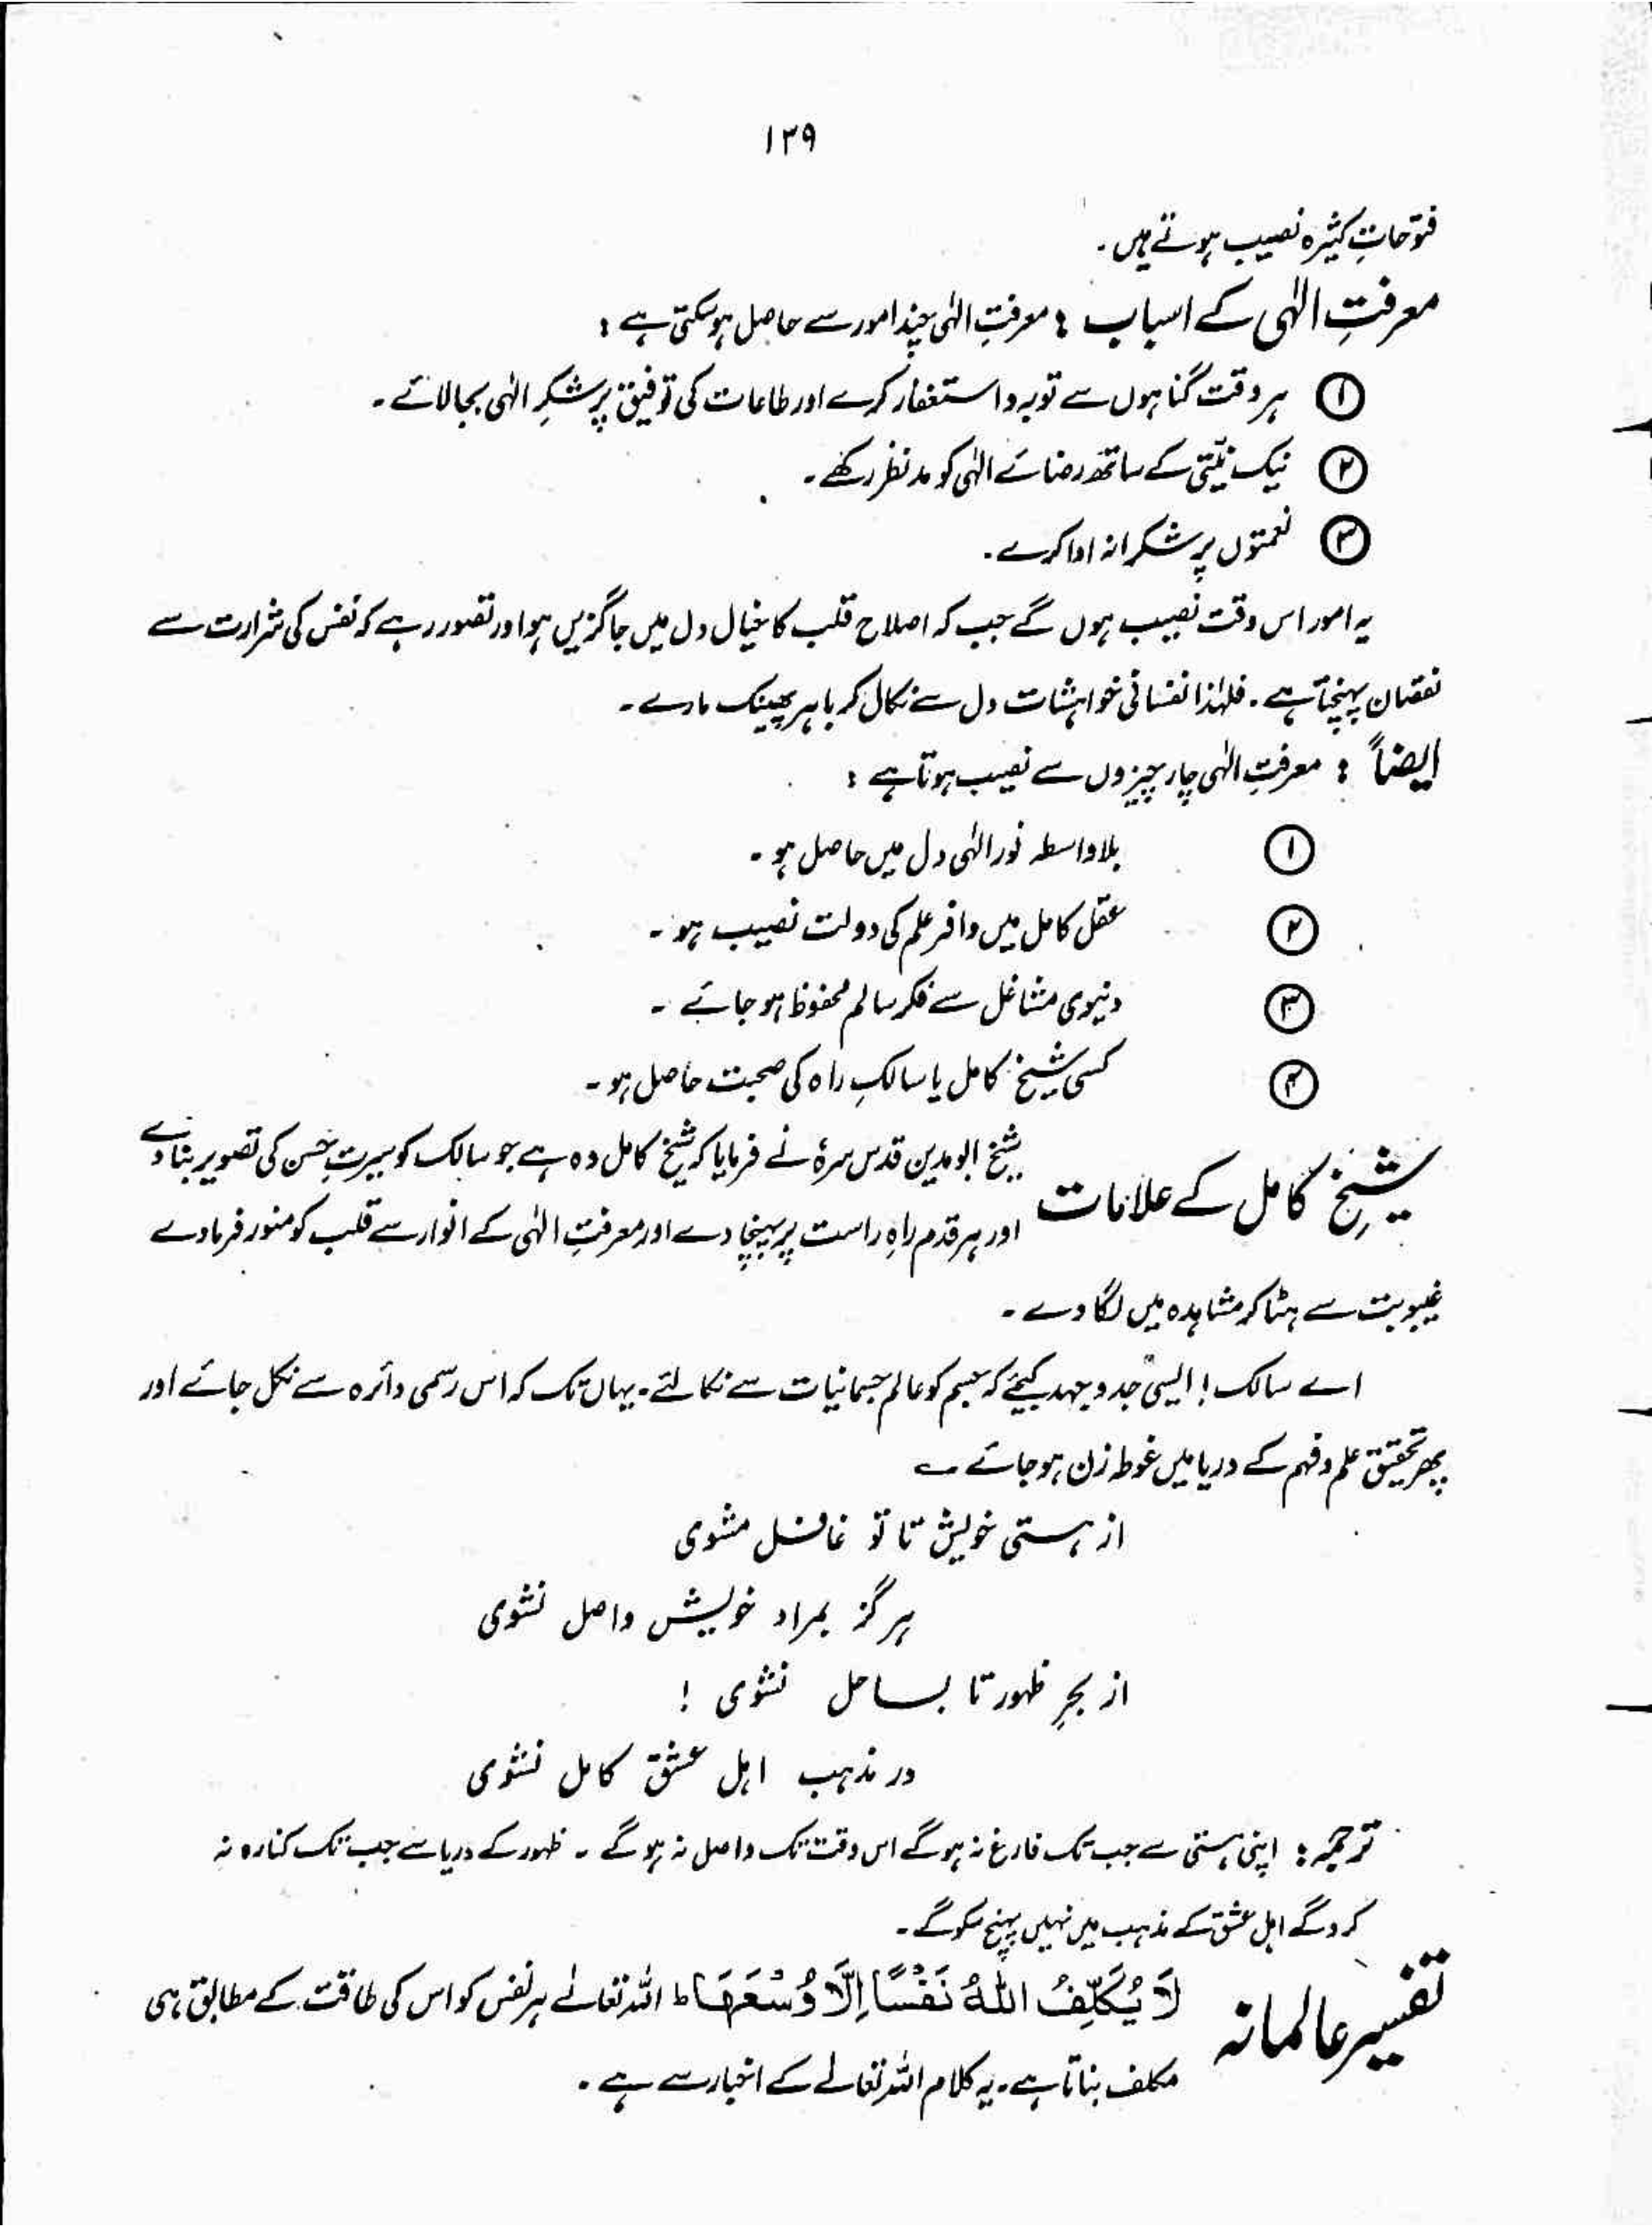 ۱۳۹
فتوّحاتِ کثیرہ نصیب ہوتے ہیں۔
معرفتِ الٰہی کے اسباب : معرفتِ الٰہی چند امور سے حاصل ہوسکتی ہے :
① ہر وقت گناہوں سے توبہ و استغفار کرے اور طاعات کی توفیق پر شکرِ الٰہی بجا لائے۔
② نیک نیّتی کے ساتھ رضائے الٰہی کو مدنظر رکھے۔
③ نعمتوں پر شکرانہ ادا کرے۔
یہ امور اس وقت نصیب ہوں گے جب کہ اصلاح قلب کا خیال دل میں جاگزیں ہو اور تصور رہے کہ نفس کی شرارت سے
نقصان پہنچتا ہے۔ فلہٰذا نفسانی خواہشات دل سے نکال کر باہر پھینک مارے۔
ایضاً : معرفتِ الٰہی چار چیزوں سے نصیب ہوتا ہے :
① بلا واسطہ نور الٰہی دل میں حاصل ہو۔
② عقل کامل میں وافر علم کی دولت نصیب ہو۔
③ دنیوی مشاغل سے فکر سالم محفوظ ہو جائے۔
④ کسی شیخ کامل یا سالکِ راہ کی صحبت حاصل ہو۔
شیخِ کامل کے علامات شیخ ابو مدین قدس سرہٗ نے فرمایا کہ شیخ کامل وہ ہے جو سالک کو سیرتِ حسن کی تصویر بنا دے
اور ہر قدم راہِ راست پر پہنچا دے اور معرفتِ الٰہی کے انوار سے قلب کو منور فرما دے
غیبوبت سے ہٹا کر مشاہدہ میں لگا دے۔
اے سالک! ایسی جد و جہد کیجئے کہ جسم کو عالم جسمانیات سے نکالئے۔ یہاں تک کہ اس رسمی دائرہ سے نکل جائے اور
پھر تحقیق علم و فہم کے دریا میں غوطہ زن ہو جائے ؎
از ہستی خویش تا تو غافل مشوی
ہرگز بمراد خویش واصل نشوی
از بحرِ ظہور تا بساحل نشوی !
در مذہب اہل عشق کامل نشوی
ترجمہ : اپنی ہستی سے جب تک فارغ نہ ہوگے اس وقت تک واصل نہ ہوگے۔ ظہور کے دریا سے جب تک کنارہ نہ
کرو گے اہل عشق کے مذہب میں نہیں پہنچ سکو گے۔
تفسیر عالمانہ لَا یُکَلِّفُ اللّٰهُ نَفْسًا اِلَّا وُسْعَهَا ط اللہ تعالےٰ ہر نفس کو اس کی طاقت کے مطابق ہی
مکلف بناتا ہے۔ یہ کلام اللہ تعالےٰ کے اخبار سے ہے۔